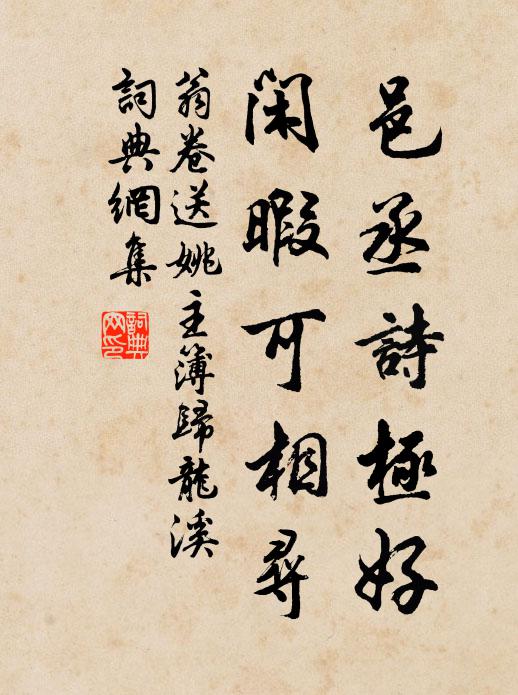 邑丞詩極好
閑暇可相尋
翁卷送姚主簿歸龍溪
詞典網集
詞典網印